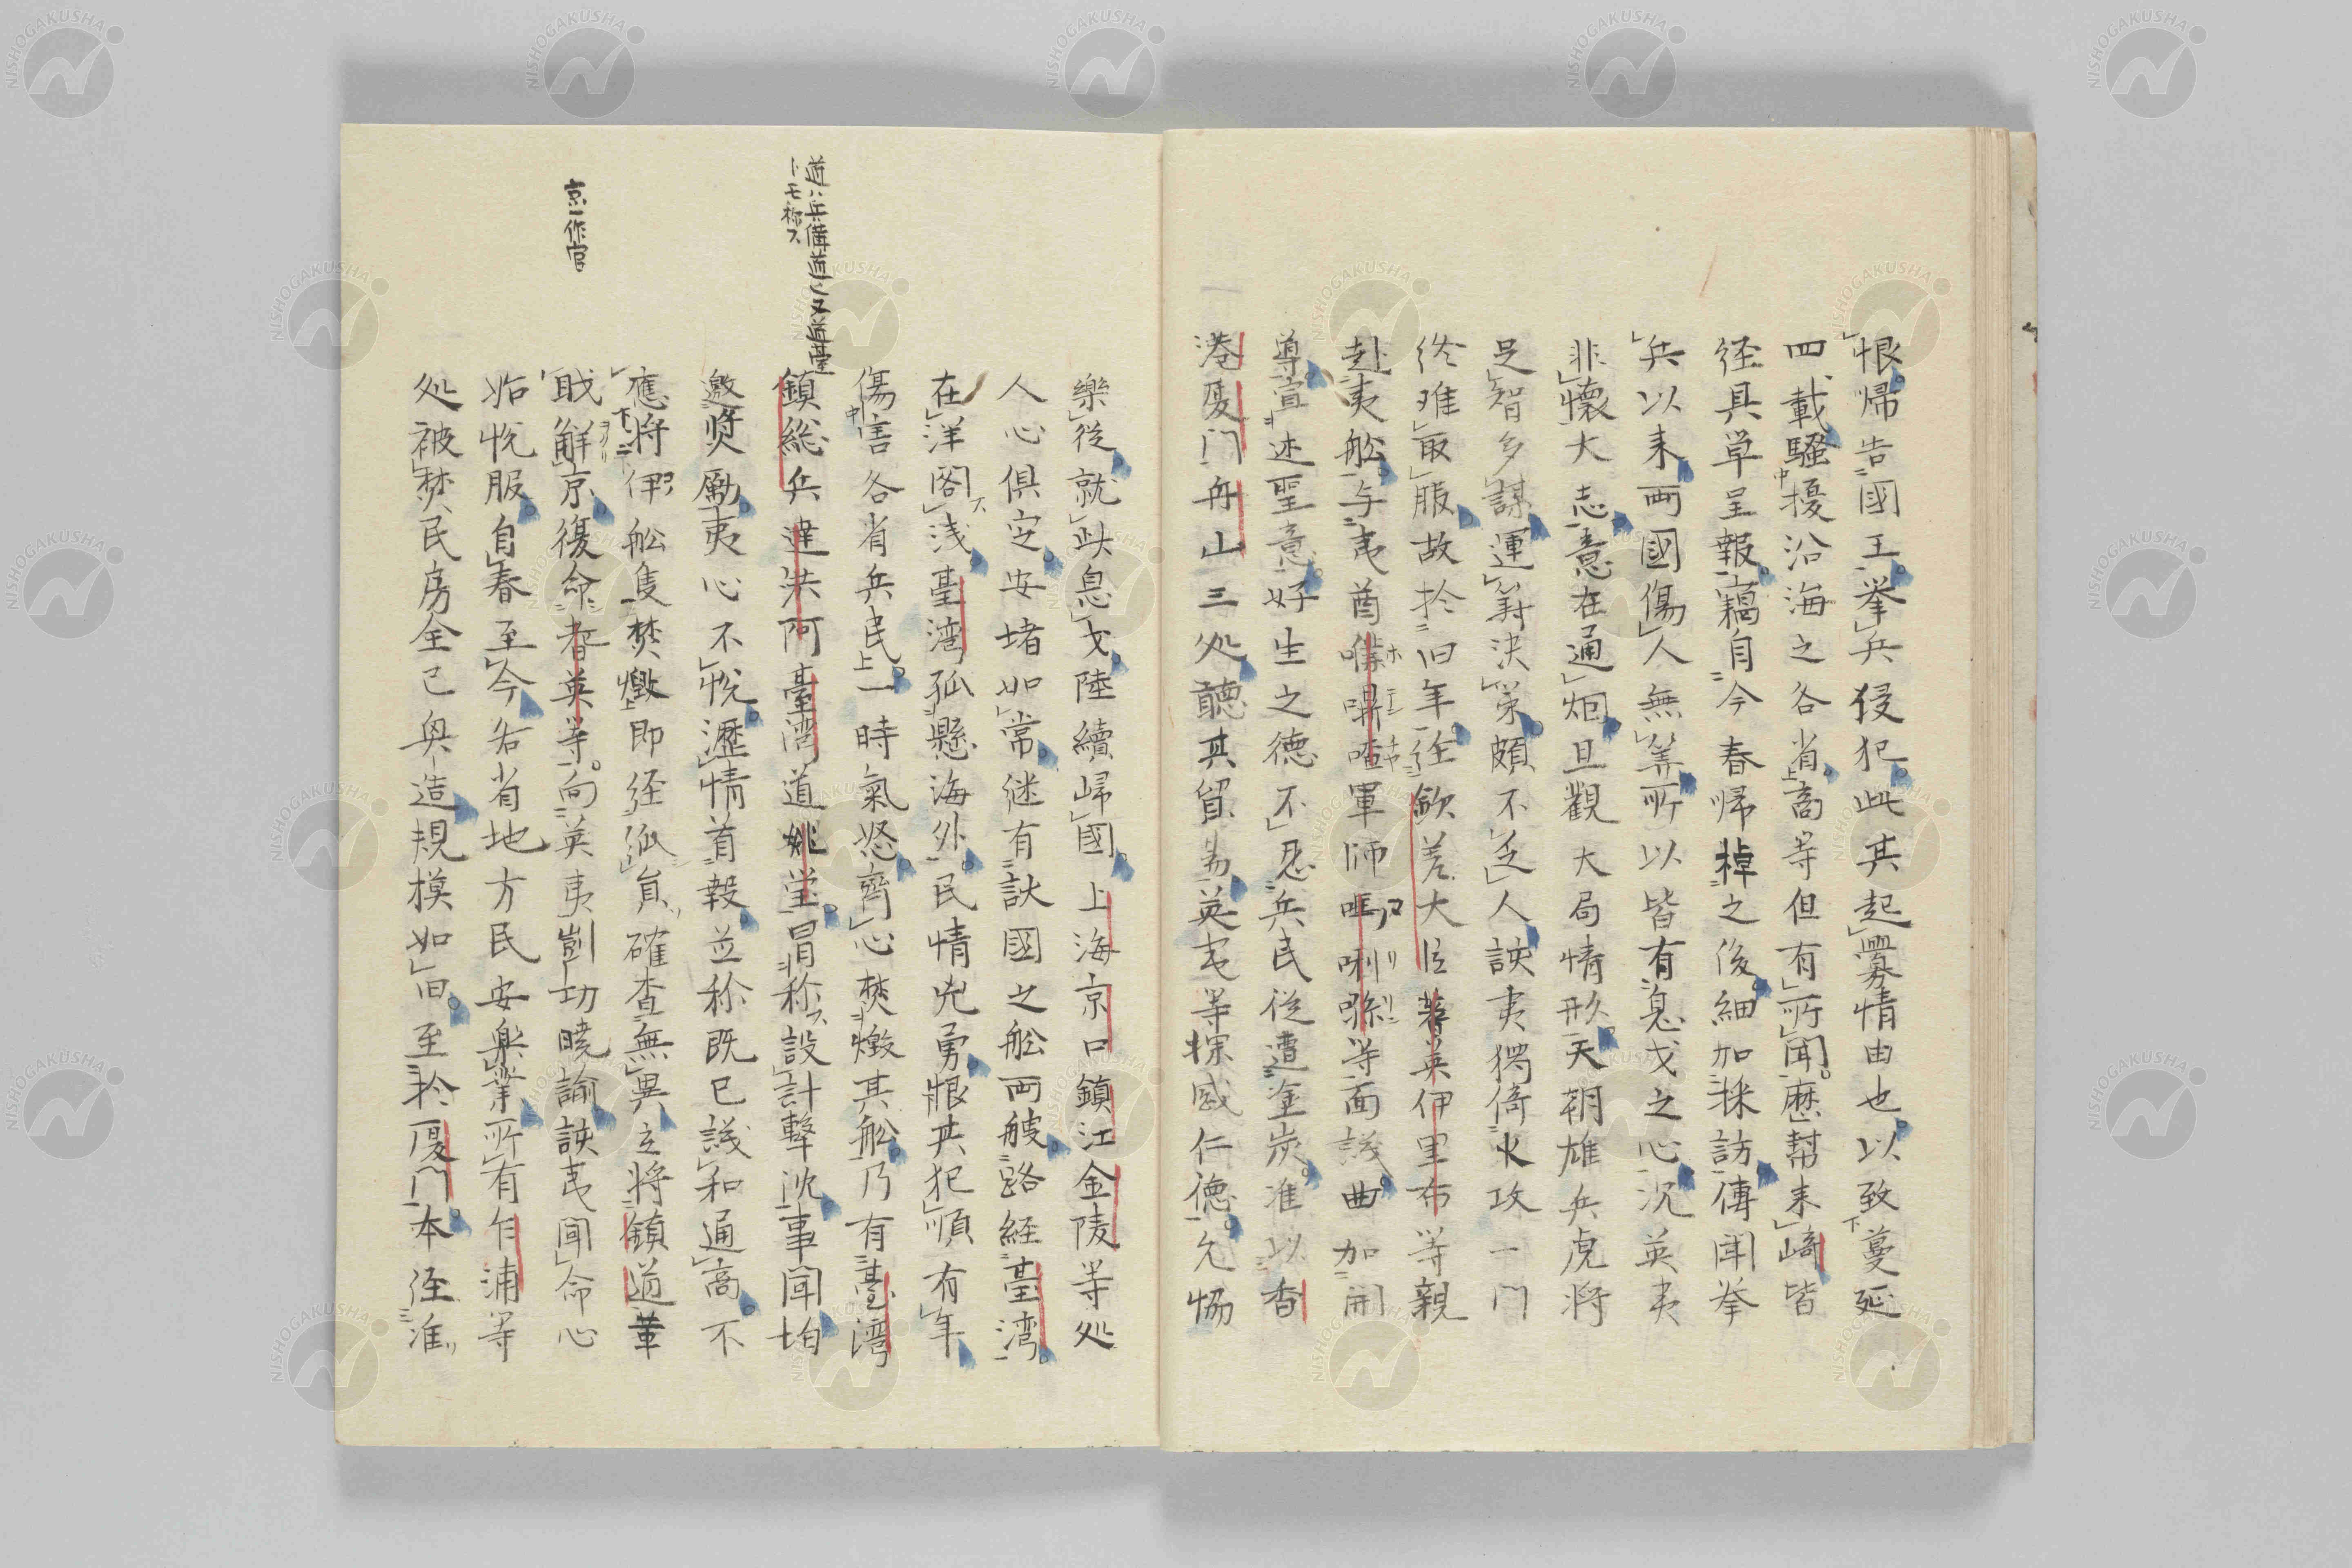 恨帰告國王挙兵侵犯此其起釁情由也以致蔓延
四載騷擾沿海之各省商等但有所聞歴幇来崎皆
径具草呈報竊自今春帰棹之後細加採訪傳聞挙
兵以来両國傷人無筭所以皆有息戈之心況英夷
非懐大志意在通烟且觀大局情形天朝雄兵虎將
足智多謀運籌決策頗不乏人該夷獨倚火攻一門
终难取服故於旧年経欽差大臣耆英伊里布等親
赴夷舩与夷酋噃喳軍師嗎唎聮等面議曲加開
導宣述聖意好生之德不忍兵民従遭塗炭准以香
港厦门舟山三处聽其貿易英夷等懐威仁德允協
樂従就此息戈陸續歸國上海京口鎮江金陵等処
人心俱定安堵如常继有該國之舩両艘路経臺湾
在洋閣浅臺湾孤懸海外民情兇勇恨其犯順有年
傷害各省兵民一時氣怒齊心焚燬其舩乃有臺湾
鎮総兵達洪阿臺湾道姚莹冒称設計擊沈事聞均
邀獎勵夷心不悅瀝情首報並称既已議和通商不
應將伊舩隻焚燬即経派員確查無異立將鎮道革
職觧京復命耆英等向英夷剴切曉諭該夷聞命心
始悅服自春至今各省地方民安樂業所有乍浦等
处被焚民房全已興造規模如旧至於厦门本経准
道ハ兵備道也又道臺
トモ称ス
京一作官